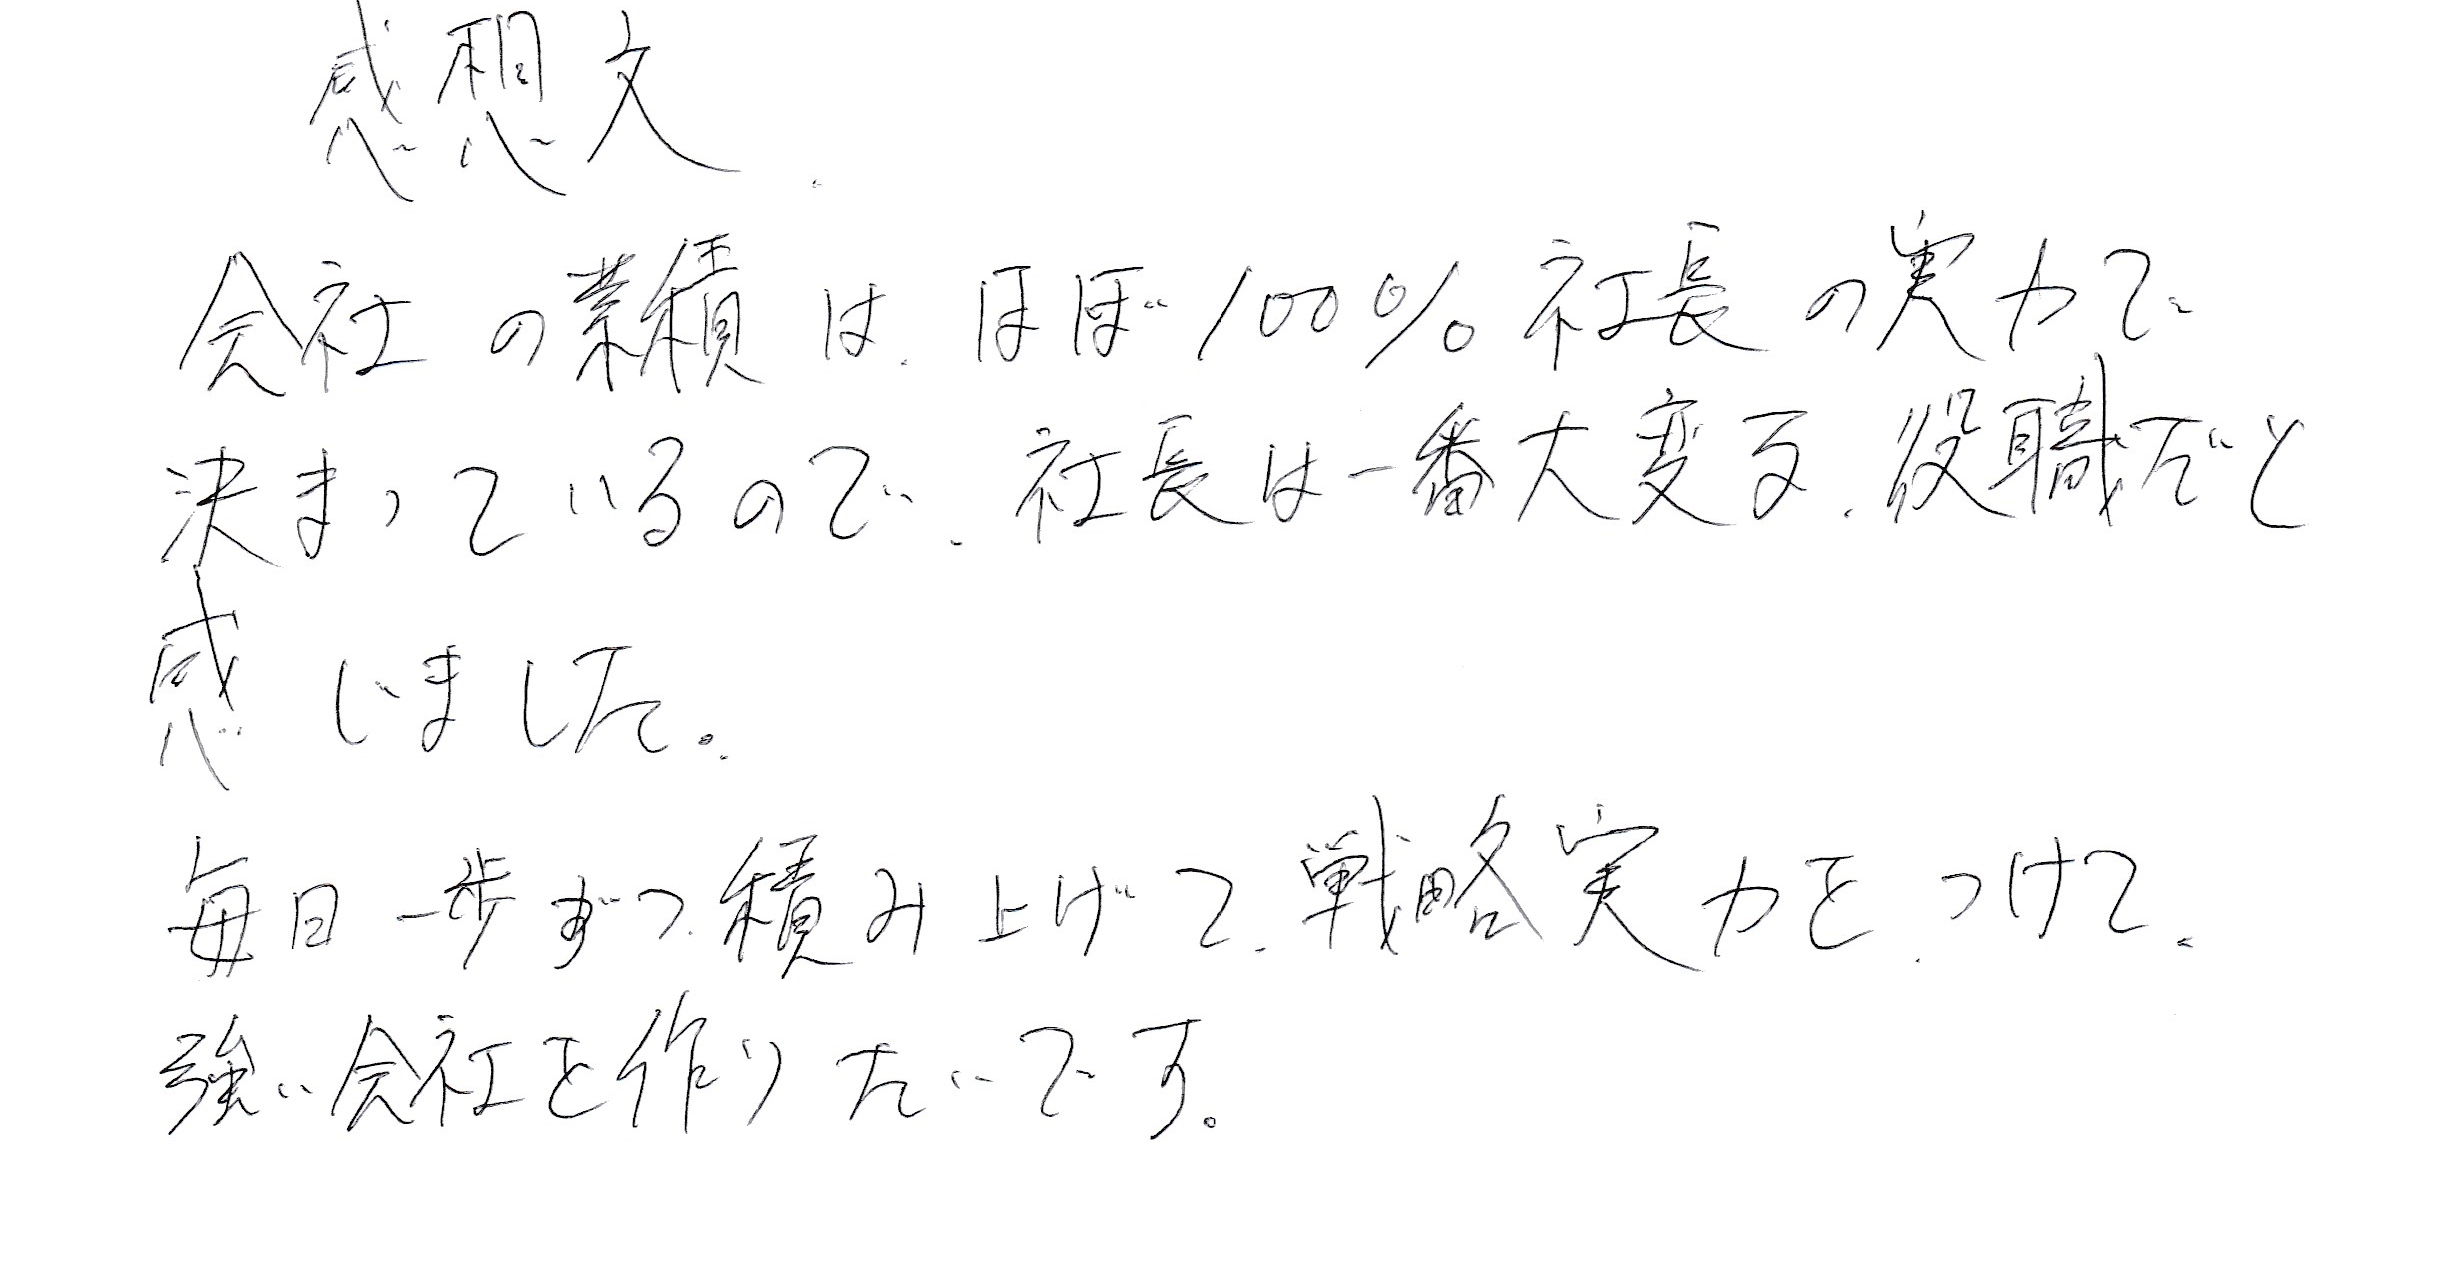 感想文
会社の業績は、ほぼ100%社長の実力で
決まっているので、社長は一番大変な、役職だと
感じました。
毎日一歩ずつ、積み上げて、戦略実力を、つけて、
強い会社を作りたいです。